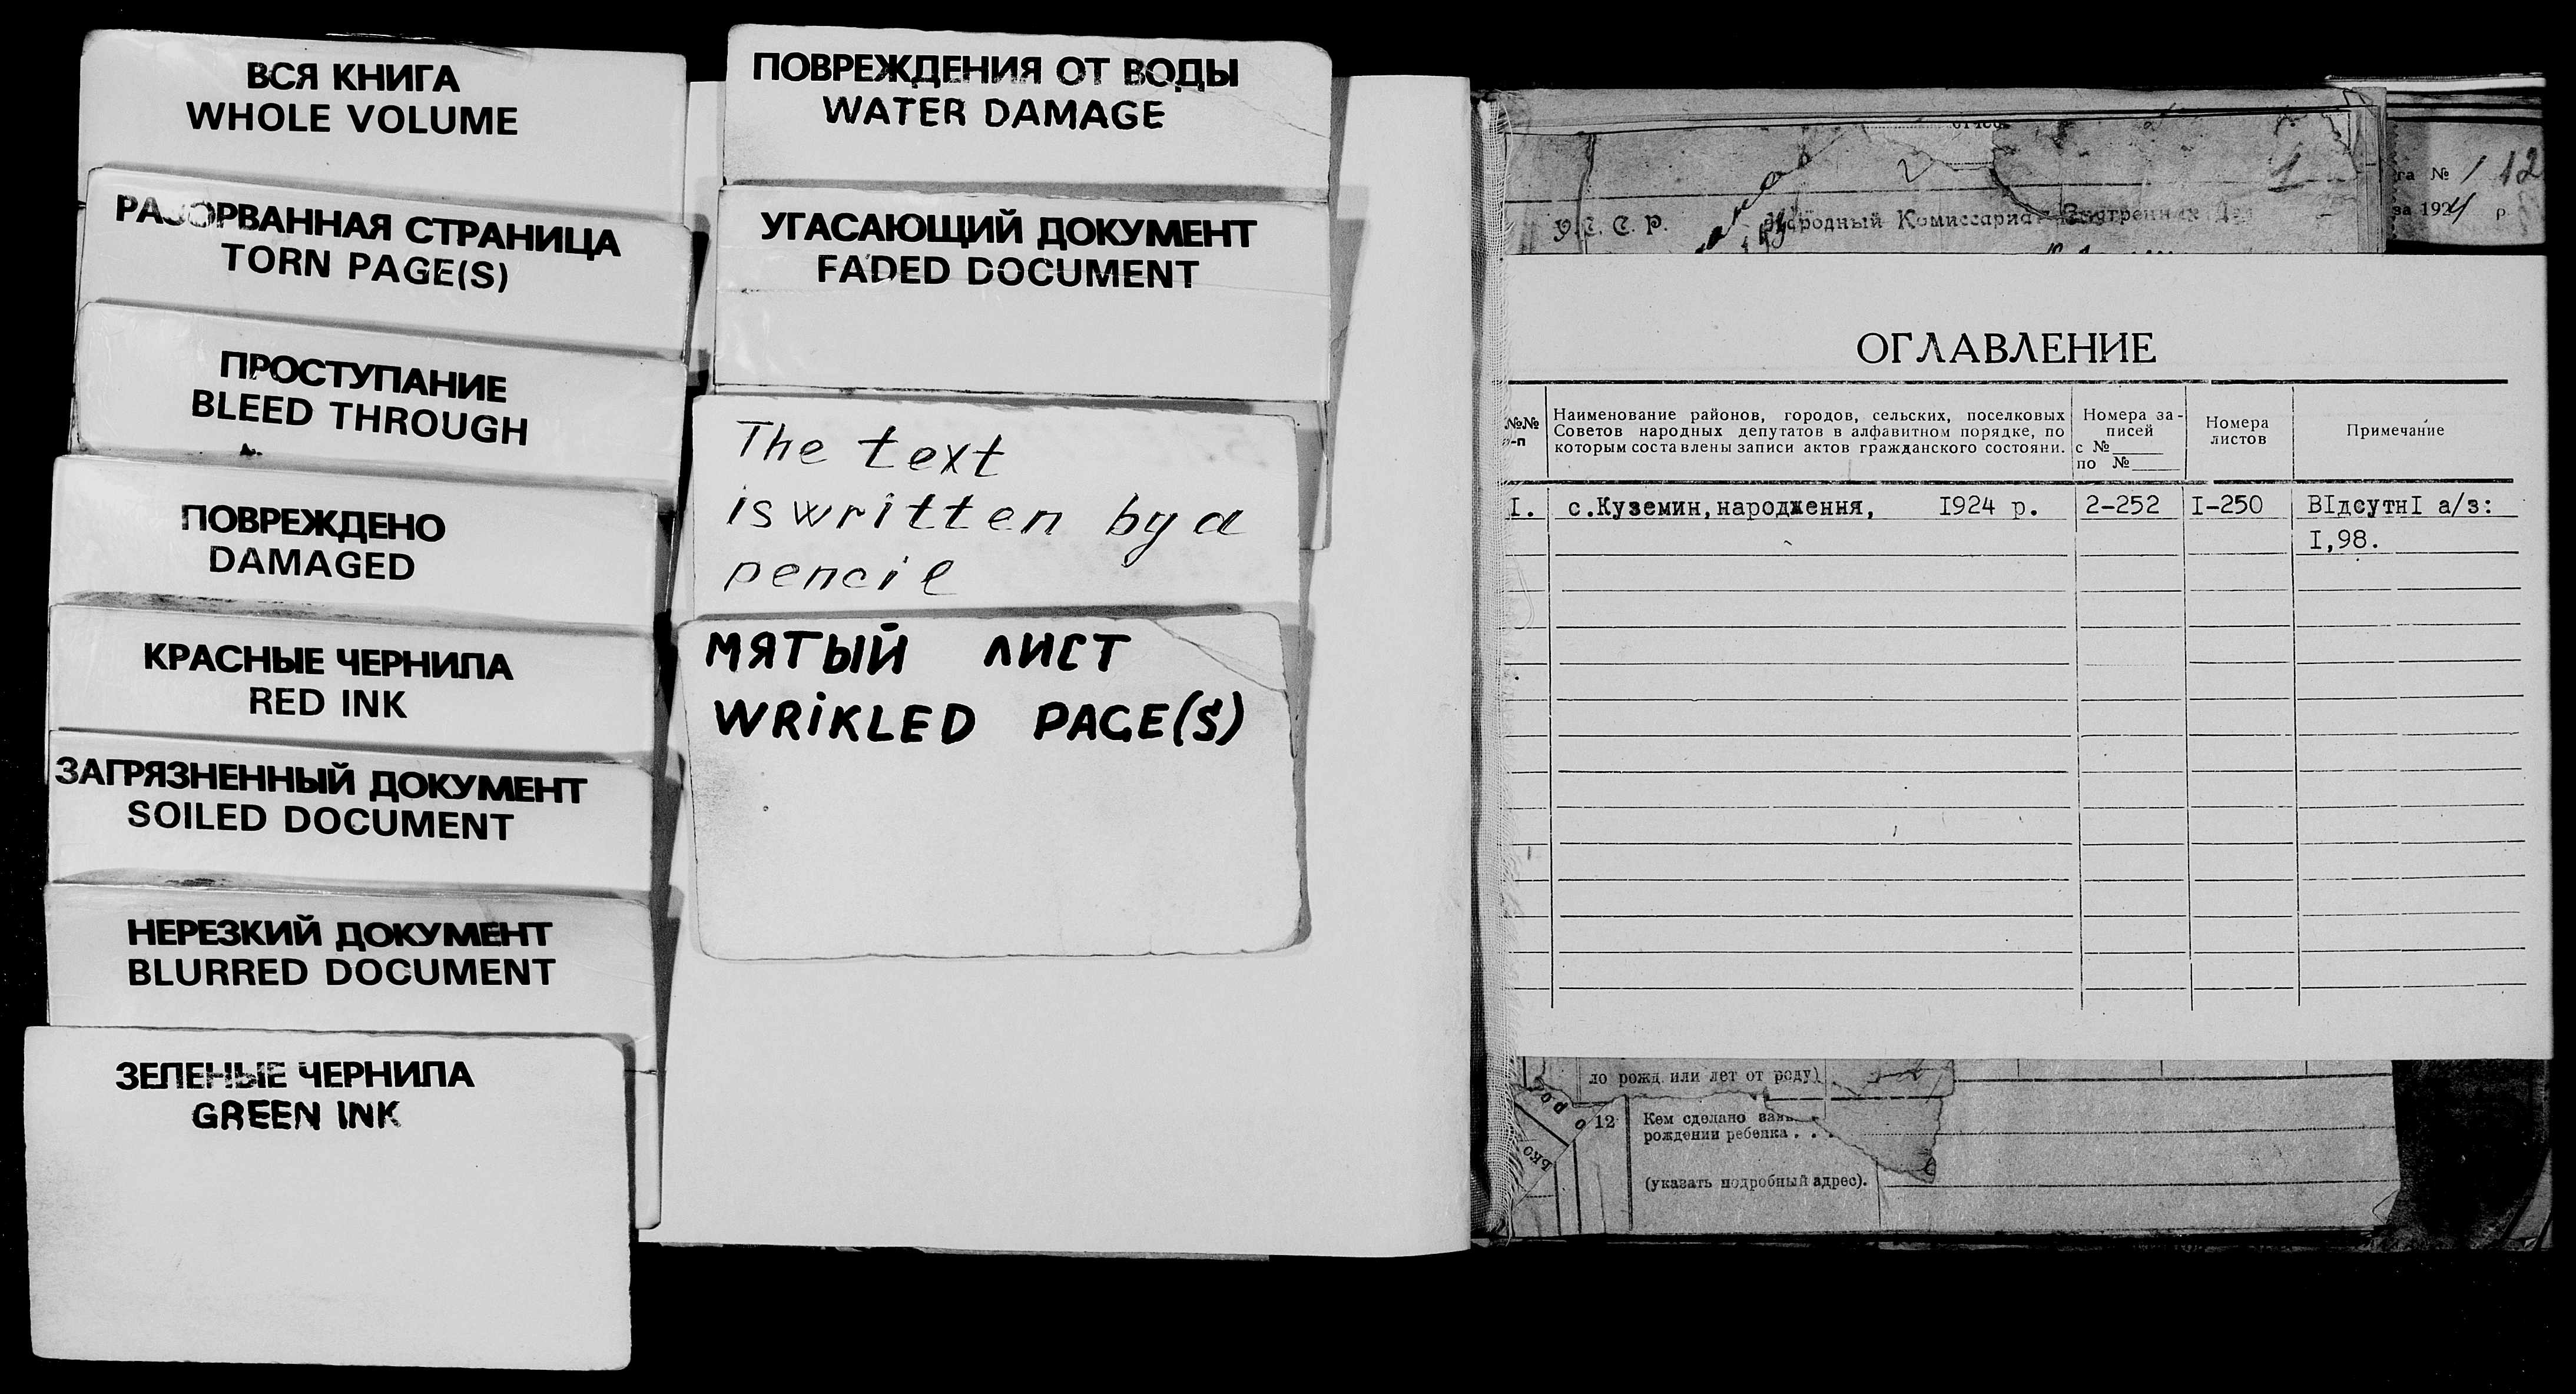 ВСЯ КНИГА
WHOLE VOLUME
РАЗОРВАННАЯ СТРАНИЦА
TORN PAGE(S)
ПРОСТУПАНИЕ
BLEED THROUGH
ПОВРЕЖДЕНО
DAMAGED
КРАСНЫЕ ЧЕРНИЛА
RED INK
ЗАГРЯЗНЕННЫЙ ДОКУМЕНТ
SOILED DOCUMENT
НЕРЕЗКИЙ ДОКУМЕНТ
BLURRED DOCUMENT
ЗЕЛЕНЫЕ ЧЕРНИЛА
GREEN INK
ПОВРЕЖДЕНИЯ ОТ ВОДЫ
WATER DAMAGE
УГАСАЮЩИЙ ДОКУМЕНТ
FADED DOCUMENT
The text
is written by a
pencil
МЯТЫЙ ЛИСТ
WRIKLED PAGE(S)
га № 1 12
за 1924 р
1
У. С. С. Р. Народный Комиссариат Внутренних Дел
ОГЛАВЛЕНИЕ
№№ п-п
Наименование районов, городов, сельских, поселковых
Советов народных депутатов в алфавитном порядке, по
которым составлены записи актов гражданского состояни.
Номера за-
писей
с №
по №
Номера
листов
Примечание
I. с.Куземин,народження, I924 р. 2-252 I-250 ВIдсутнI а/з:
I,98.
ло рожд или лет от роду)
12 Кем сделано
рождении ребенка . . .
(указать подробный адрес).